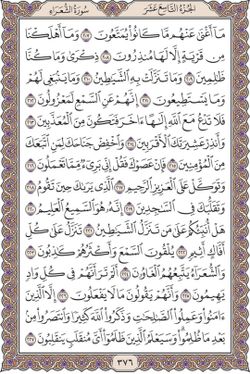 الجزء التاسع عشر سورة الشعراء
ما أغنى عنهم ما كانوا يمتعون ٢٠٧ وما أهلكنا
من قرية إلا لها منذرون ٢٠٨ ذكرى وما كنا
ظالمين ٢٠٩ وما تنزلت به الشياطين ٢١٠ وما ينبغي لهم
وما يستطيعون ٢١١ إنهم عن السمع لمعزولون ٢١٢
فلا تدع مع الله إلها آخر فتكون من المعذبين ٢١٣
وأنذر عشيرتك الأقربين ٢١٤ واخفض جناحك لمن اتبعك
من المؤمنين ٢١٥ فإن عصوك فقل إني بريء مما تعملون ٢١٦
وتوكل على العزيز الرحيم ٢١٧ الذي يراك حين تقوم ٢١٨
وتقلبك في الساجدين ٢١٩ إنه هو السميع العليم ٢٢٠
هل أنبئكم على من تنزل الشياطين ٢٢١ تنزل على كل
أفاك أثيم ٢٢٢ يلقون السمع وأكثرهم كاذبون ٢٢٣
والشعراء يتبعهم الغاوون ٢٢٤ ألم تر أنهم في كل واد
يهيمون ٢٢٥ وأنهم يقولون ما لا يفعلون ٢٢٦ إلا الذين
ءامنوا وعملوا الصالحات وذكروا الله كثيرا وانتصروا من
بعد ما ظلموا وسيعلم الذين ظلموا أي منقلب ينقلبون ٢٢٧
٣٧٦